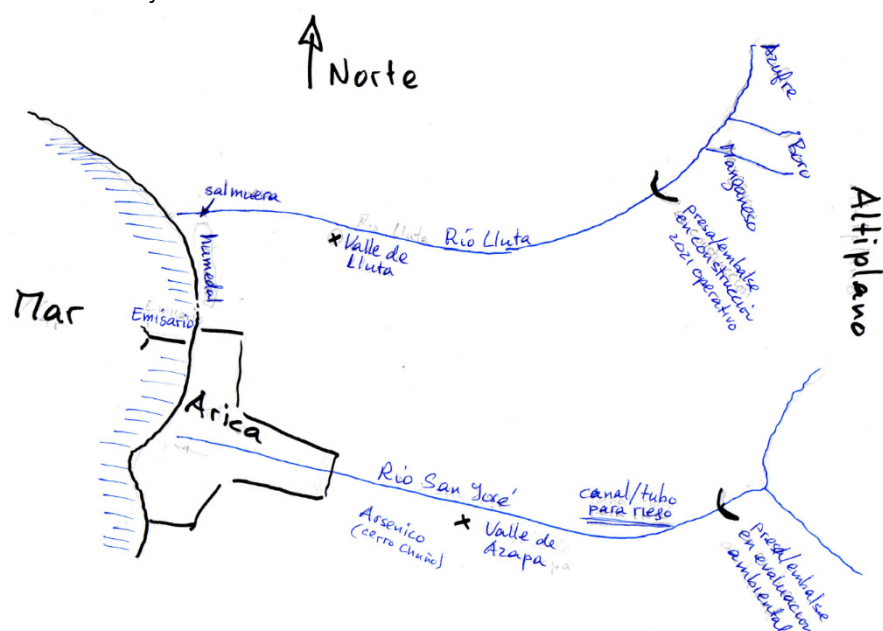 Norte
Azufre
Boro
Manganeso
Altiplano
salmuera
humedal
Río Lluta
Valle de
Lluta
presa/embalse
en construccion
2021 operativo
Mar
Emisario
Arica
Río San José
canal/tubo
para riego
Arsenico
(cerro Chuño)
Valle de
Azapa
presa/embalse
en evaluacion
ambiental